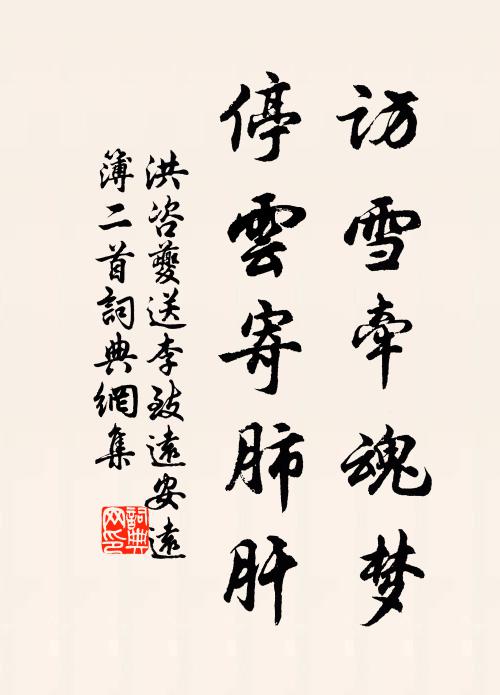 访雪牵魂梦
停雲寄肺肝
洪咨夔送李致遠安遠
簿二首詞典網集
詞典
网印